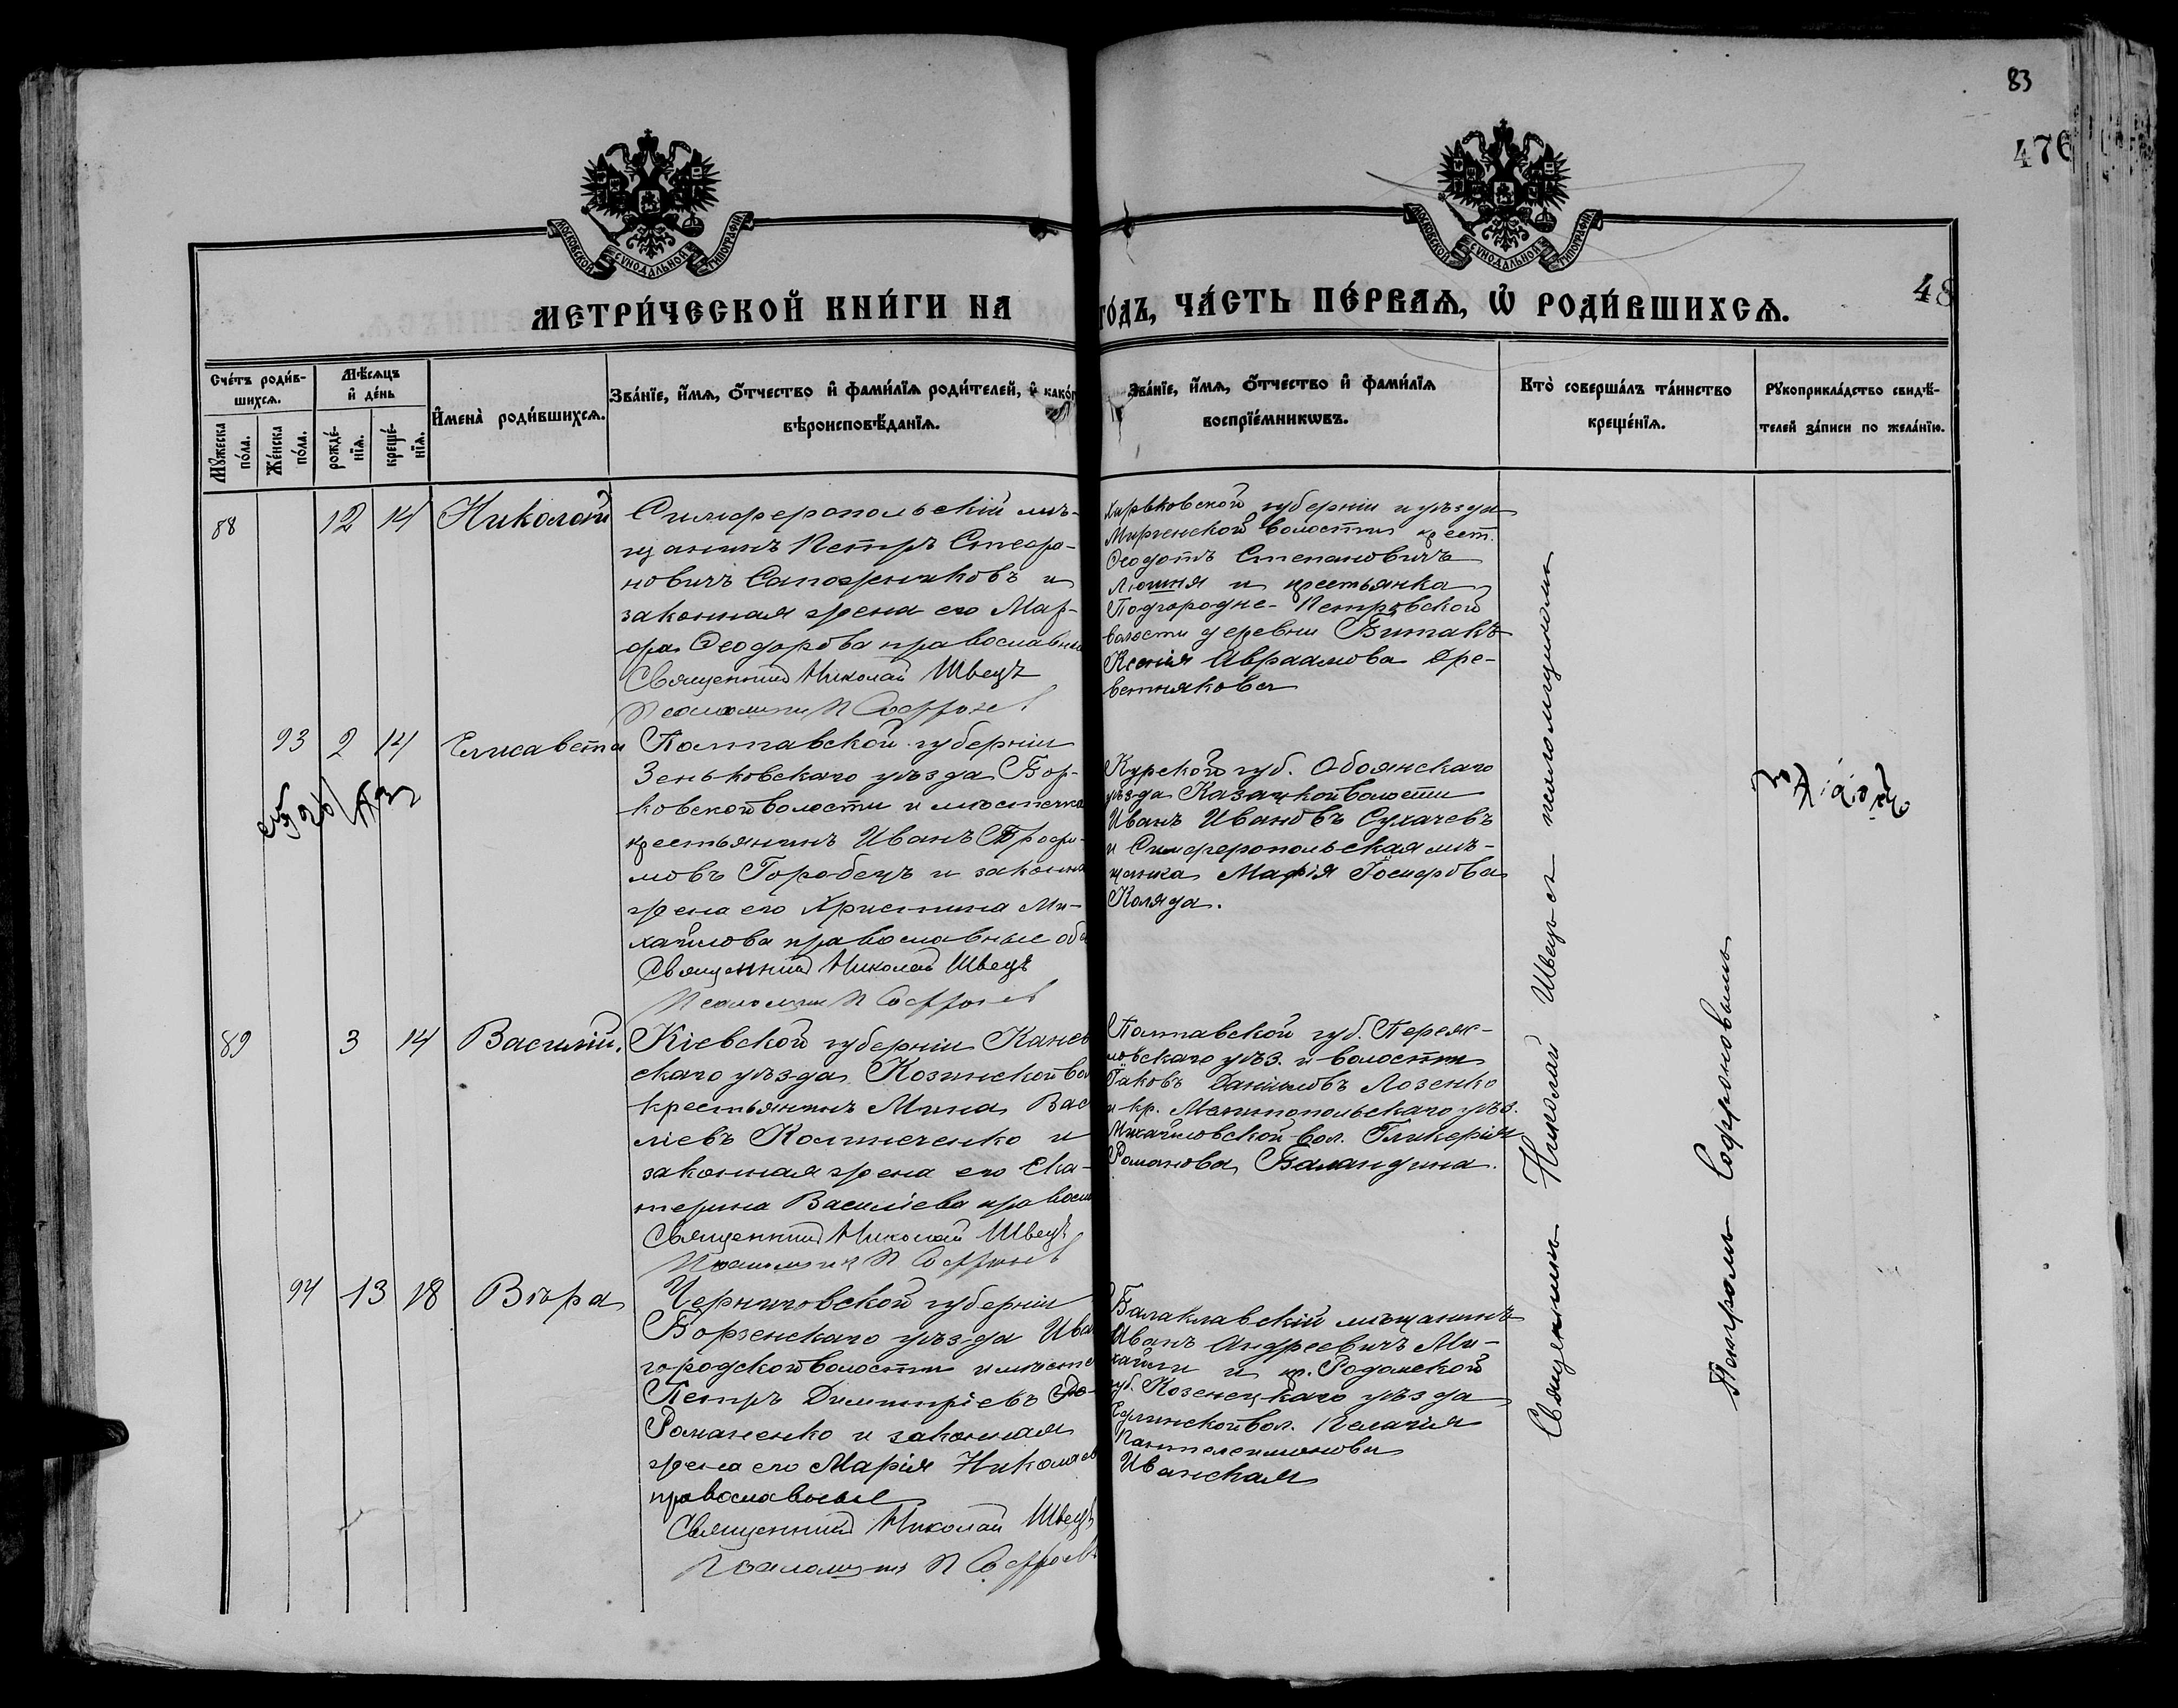 83
476
48
МОСКОВСКОЙ СѴНОДАЛЬНОЙ ТИПОГРАФІИ
МОСКОВСКОЙ СѴНОДАЛЬНОЙ ТИПОГРАФІИ
МЕТРИ́ЧЕСКОЙ КНИ́ГИ НА
ГО́ДЪ, ЧА́СТЬ ПЕ́РВАѦ, Ѡ҆ РОДИ́ВШИХСѦ.
Сче́тъ роди́в-
шихсѧ.
Мꙋ́жеска по́ла.
Же́нска по́ла.
Мѣ́сѧцъ
и҆ де́нь
рожде́-
нїѧ.
креще́-
нїѧ.
И҆мена̀ роди́вшихсѧ.
Зва́нїе, и҆́мѧ, ѻ҆́тчество и҆ фами́лїѧ роди́телей, и҆ како́г
вѣроисповѣ́данїѧ.
Зва́нїе, и҆́мѧ, ѻ҆́тчество и҆ фами́лїѧ
воспрїе́мникѡвъ.
Кто̀ соверша́лъ та́инство
креще́нїѧ.
Рꙋкоприкла́дство свидѣ́-
телей за́писи по жела́нїю.
88 12 14 Николай
Симферопольскій мѣ-
щанинъ Петръ Стефа-
новичъ Сапожниковъ и
законная жена его Мар-
фа Ѳеодорова православные
Священникъ Николай Швецъ
Псаломщикъ П Софронов
Харьковской губерніи и уѣзда
волости крест.
Ѳеодотъ Степановичъ
и крестьянка
Подгородне-Петровской
волости деревни Битакъ
Ксенія Авраамова Дре-
ветнякова
93 2 14 Елисавета
Полтавской губерніи
Зеньковскаго уѣзда Бор-
ковской волости и мѣстечка
крестьянинъ Иванъ Трофи-
мовъ Горобецъ и законная
жена его Христина Ми-
хайлова православные оба
Священникъ Николай Швецъ
Псаломщикъ П Софронов
Курской губ. Обоянскаго
уѣзда Казацкой волости
Иванъ Ивановъ Сухачевъ
и Симферопольская мѣ-
щанка Марія Іосифова
Коляда.
89 3 14 Василій.
Кіевской губерніи Канев
скаго уѣзда Козинской вол
крестьянинъ Мина Васи
ліевъ Колтнеченко и
законная жена его Ека-
терина Василіева правосл
Священникъ Николай Швецъ
Псаломщикъ П Софронов
Полтавской губ. Переяс-
ловскаго уѣз. и волости
Іаковъ Даниловъ Лозенко
и кр. Мелитопольскаго уѣз.
Михайловской вол. Гликерія
Романова Баландина.
94 13 18 Вѣра
Черниговской губерніи
Борзенскаго уѣзда Ива
городской волости и мѣсте
Петръ Димитріевъ
Романенко и законная
жена его Марія Николаев
православные
Священникъ Николай Швецъ
Псаломщикъ П Софронов
Балаклавскій мѣщанинъ
Иванъ Андреевичъ Ми-
хайли и кр. Радомской
губ. Козенецкаго уѣзда
вол. Пелагія
Пантелеимонова
Иванская
Священникъ Николай Швецъ съ псаломщикомъ
Петромъ Софроновымъ